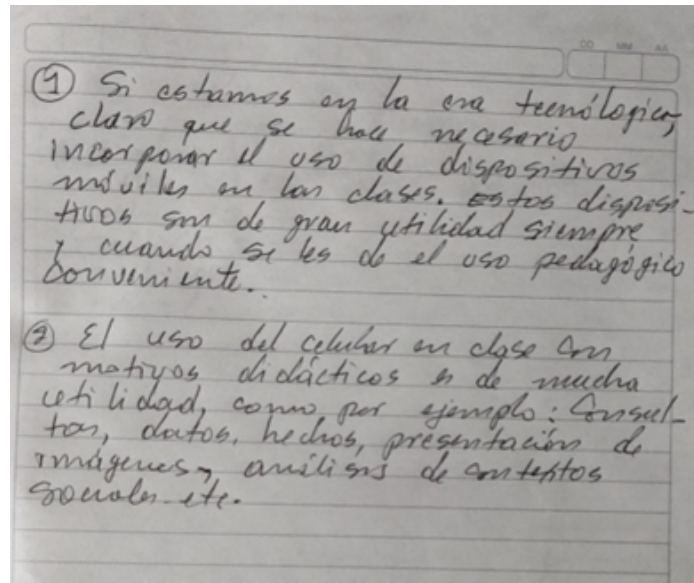 DD MM AA
① Si estamos en la era tecnólogica,
claro que se hace necesario
incorporar el uso de dispositivos
móviles en las clases. Estos disposi-
tivos son de gran utilidad siempre
y cuando se les de el uso pedagógico
conveniente.
② El uso del celular en clase con
motivos didácticos es de mucha
utilidad, como por ejemplo: Consul-
tas, datos, hechos, presentación de
imágenes, análisis de contextos
sociales etc.